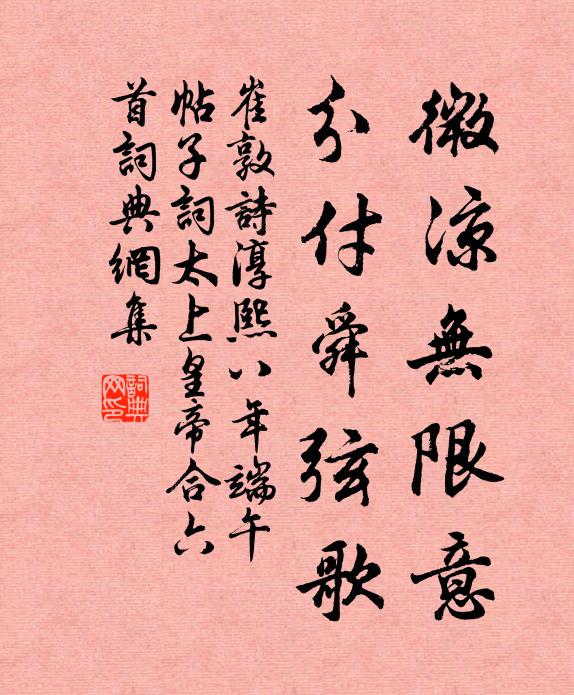 微涼無限意
分付舜弦歌
崔敦詩淳熙八年端午
帖子詞太上皇帝合六
首詞典網集
詞典
网印